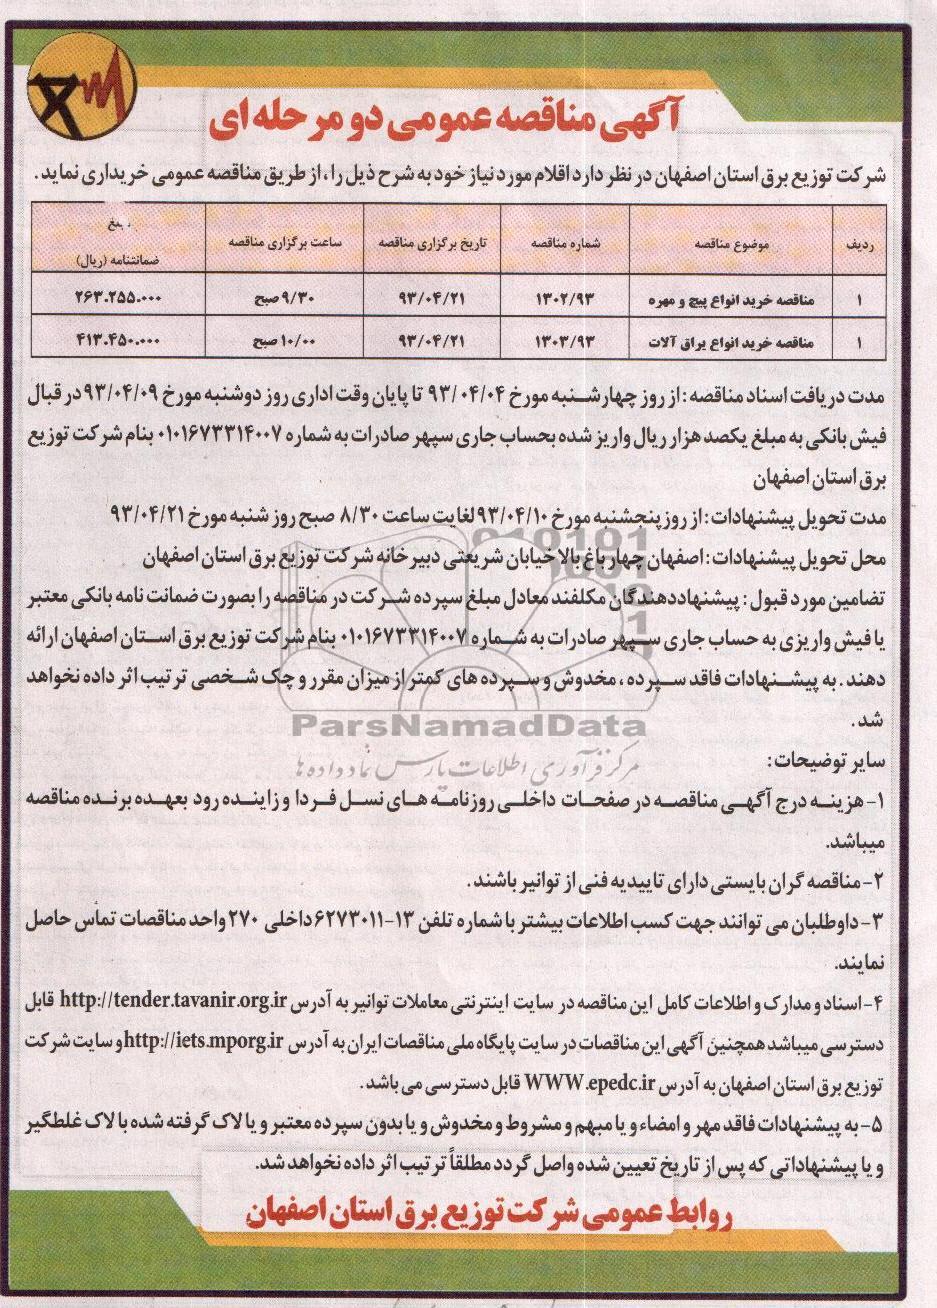 آگهی مناقصه عمومی دو مرحله ای
شرکت توزیع برق استان اصفهان در نظر دارد اقلام مورد نیاز خود به شرح ذیل را، از طریق مناقصه عمومی خریداری نماید.
ردیف موضوع مناقصه شماره مناقصه تاریخ برگزاری مناقصه ساعت برگزاری مناقصه ضمانتنامه (ریال)
۱ مناقصه خرید انواع پیچ و مهره ۱۳۰۲/۹۳ ۹۳/۰۴/۲۱ ۹/۳۰ صبح ۲۶۳.۲۵۵.۰۰۰
۱ مناقصه خرید انواع یراق آلات ۱۳۰۳/۹۳ ۹۳/۰۴/۲۱ ۱۰/۰۰ صبح ۴۱۳.۴۵۰.۰۰۰
مدت دریافت اسناد مناقصه : از روز چهارشنبه مورخ ۹۳/۰۴/۰۴ تا پایان وقت اداری روز دوشنبه مورخ ۹۳/۰۴/۰۹ در قبال
فیش بانکی به مبلغ یکصد هزار ریال واریز شده بحساب جاری سپهر صادرات به شماره ۰۱۰۱۶۷۳۳۱۴۰۰۷ بنام شرکت توزیع
برق استان اصفهان
مدت تحویل پیشنهادات : از روز پنجشنبه مورخ ۹۳/۰۴/۱۰ لغایت ساعت ۸/۳۰ صبح روز شنبه مورخ ۹۳/۰۴/۲۱
محل تحویل پیشنهادات : اصفهان چهار باغ بالا خیابان شریعتی دبیر خانه شرکت توزیع برق استان اصفهان
تضامین مورد قبول : پیشنهاددهندگان مکلفند معادل مبلغ سپرده شرکت در مناقصه را بصورت ضمانت نامه بانکی معتبر
یا فیش واریزی به حساب جاری سپهر صادرات به شماره ۰۱۰۱۶۷۳۳۱۴۰۰۷ بنام شرکت توزیع برق استان اصفهان ارائه
دهند . به پیشنهادات فاقد سپرده ، مخدوش و سپرده های کمتر از میزان مقرر و چک شخصی ترتیب اثر داده نخواهد
شد .
ParsNamadData
مرکز فرآوری اطلاعات پارس نماد داده ها
سایر توضیحات :
۱- هزینه درج آگهی مناقصه در صفحات داخلی روزنامه های نسل فردا و زاینده رود بعهده برنده مناقصه
میباشد.
۲- مناقصه گران بایستی دارای تاییدیه فنی از توانیر باشند .
۳- داوطلبان می توانند جهت کسب اطلاعات بیشتر با شماره تلفن ۱۳-۶۲۷۳۰۱۱ داخلی ۲۷۰ واحد مناقصات تماس حاصل
نمایند.
۴- اسناد و مدارک و اطلاعات کامل این مناقصه در سایت اینترنتی معاملات توانیر به آدرس http://tender.tavanir.org.ir قابل
دسترسی میباشد همچنین آگهی این مناقصات در سایت پایگاه ملی مناقصات ایران به آدرس http://iets.mporg.ir و سایت شرکت
توزیع برق استان اصفهان به آدرس WWW.epedc.ir قابل دسترسی می باشد .
۵- به پیشنهادات فاقد مهر و امضاء و یا مبهم و مشروط و مخدوش و یا بدون سپرده معتبر و یا لاک گرفته شده با لاک غلطگیر
و یا پیشنهاداتی که پس از تاریخ تعیین شده واصل گردد مطلقاً ترتیب اثر داده نخواهد شد.
روابط عمومی شرکت توزیع برق استان اصفهان